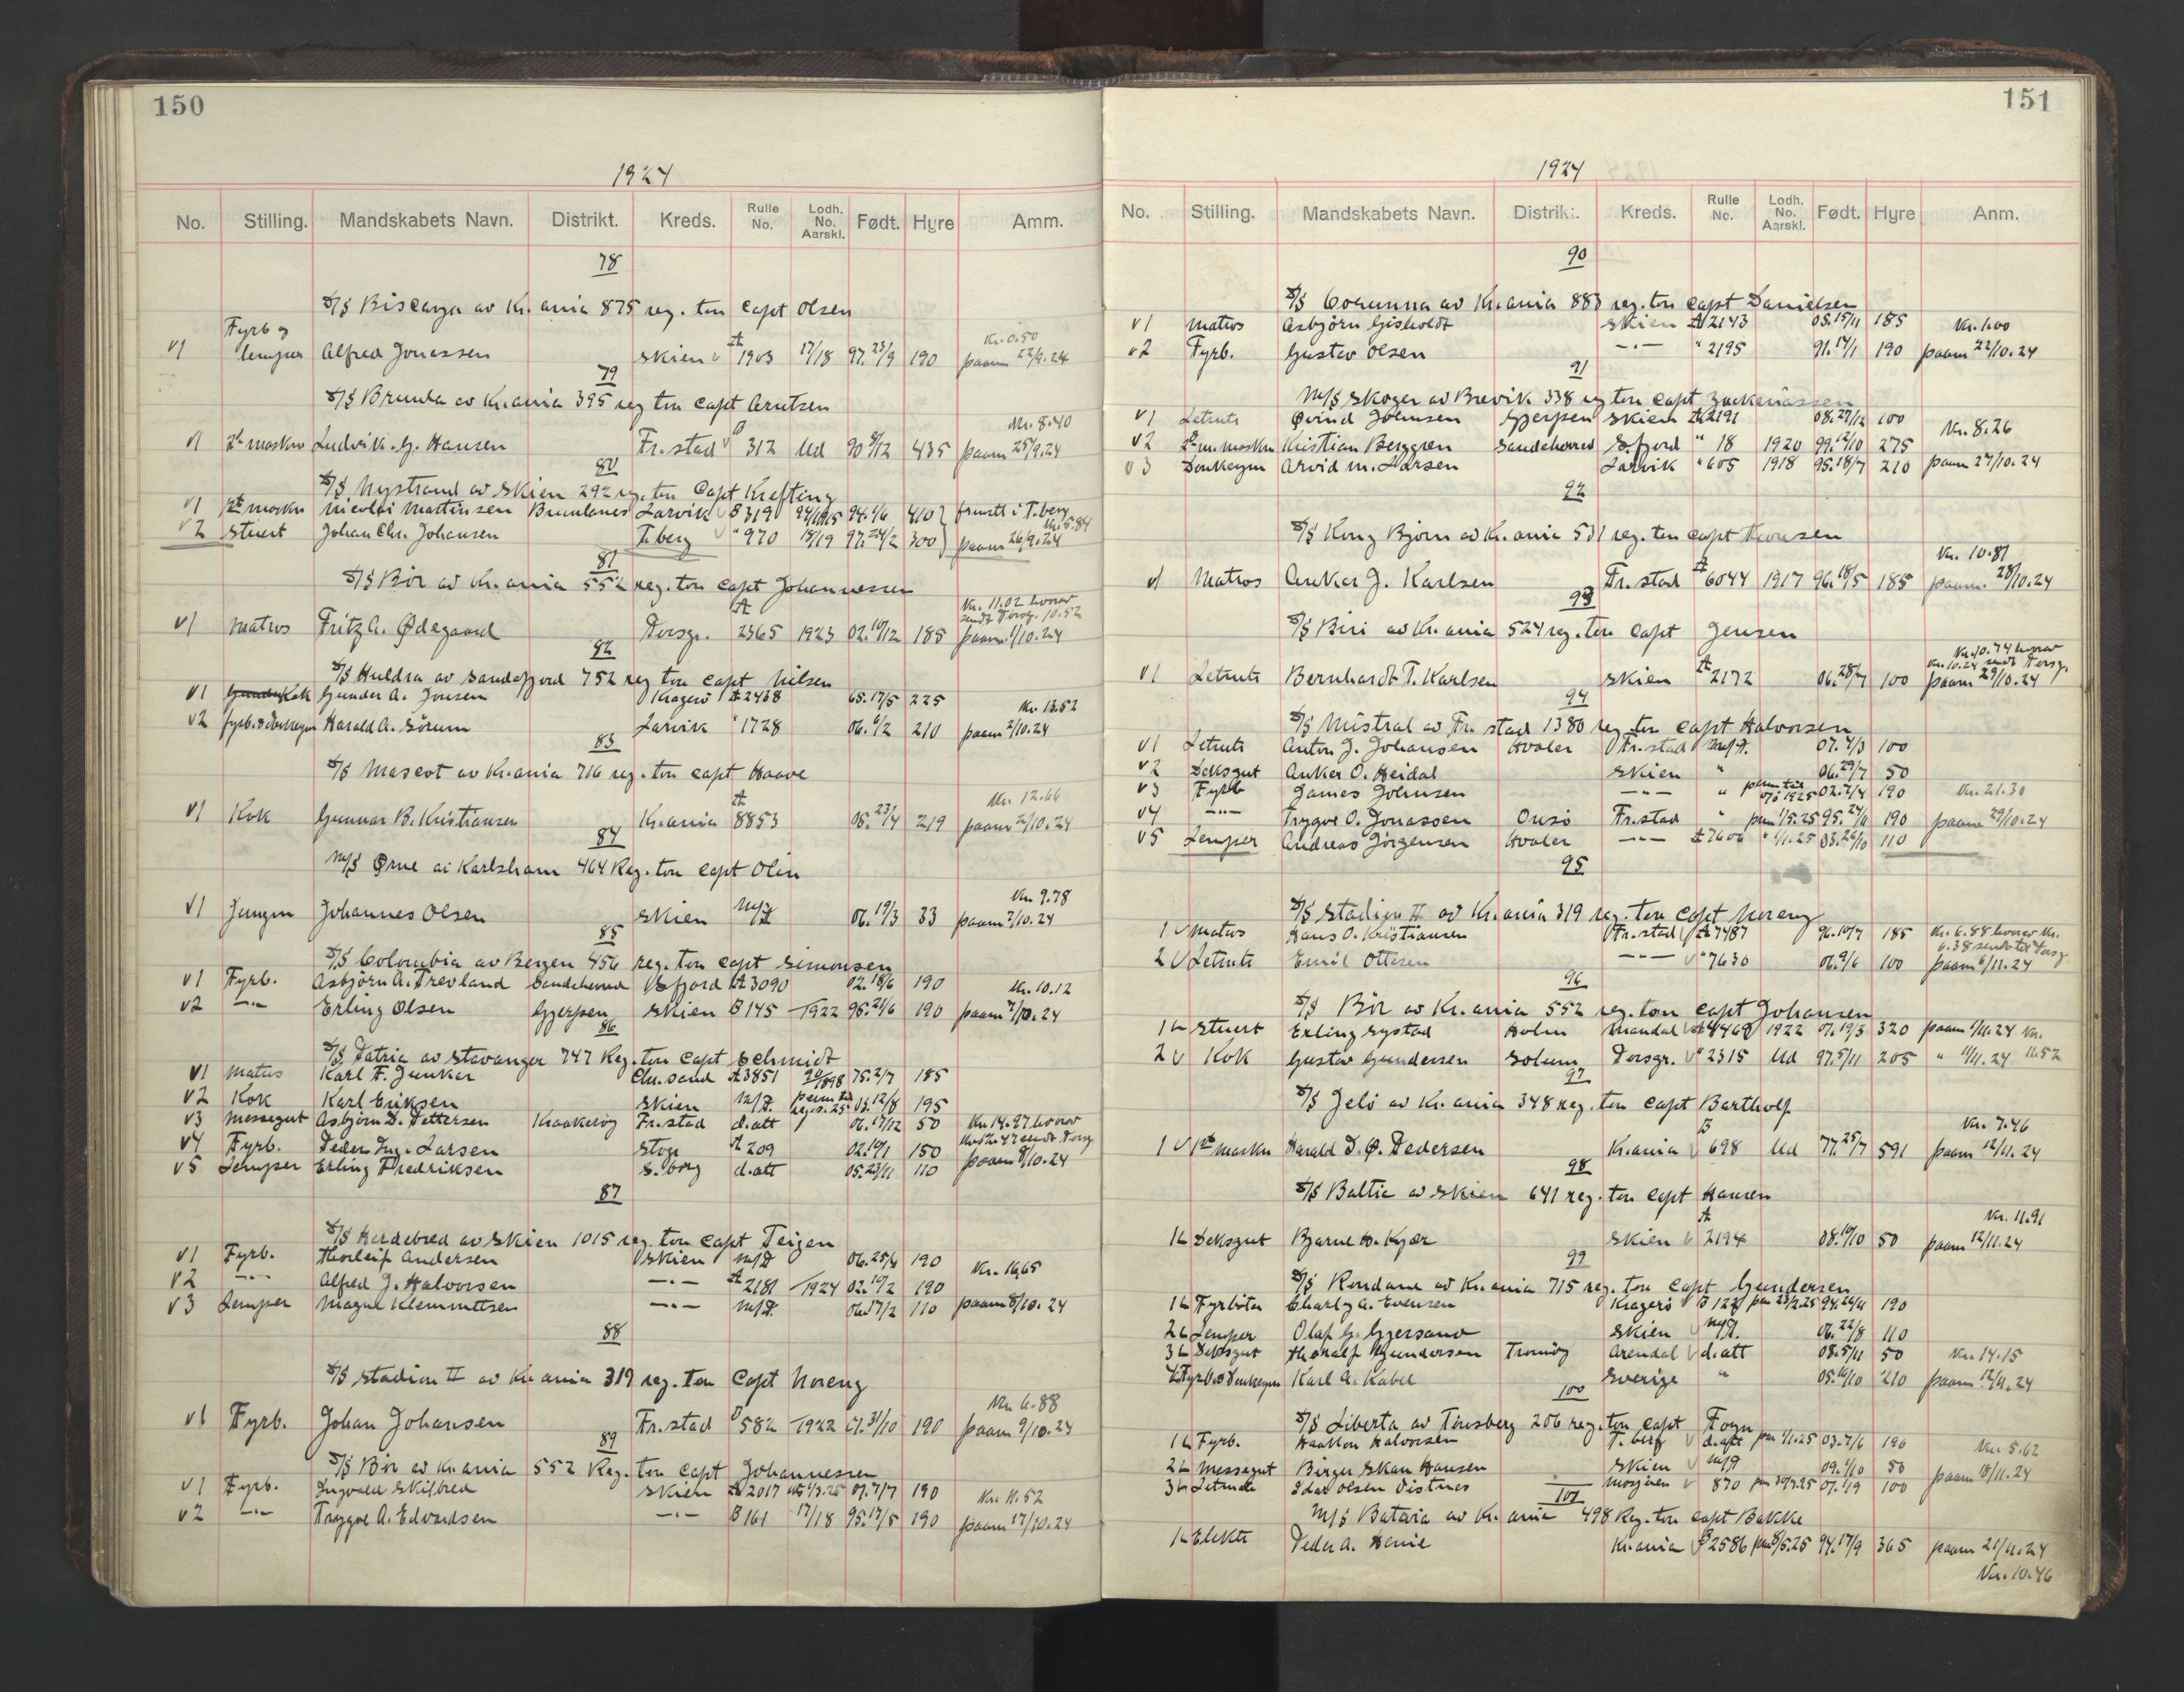 150
1924
No. Stilling. Mandskabets Navn. Distrikt. Kreds. Rulle No. Lodh. No. Aarskl. Født. Hyre Amm.
78
S/S Biscaya av Kr.ania 875 reg. ton Capt Olsen
v1 Fyrb og lemper Alfred Jonassen Skien v A 1903 17/18 97.23/9 190 Kr. 0.50 paam 22/9.24
79
S/S Brunla av Kr.ania 395 reg ton Capt Arntsen
v1 2d maskn Ludvik. G. Hansen Fr.stad v B 312 Ud 90 8/12 435 Kr. 8.40 paam 25/9.24
80
S/S Nystrand av Skien 292 reg. ton Capt Krefting
v1 1ste maskn Nicolai Martinsen Brunlanes Larvik v B 319 94.1/6 410
v2 Stuert Johan Chr. Johansen T.berg v " 970 18/19 97.24/2 300 Kr. 5.84 paam 26/9.24
81
S/S Bör av Kr.ania 552 reg. ton Capt Johannessen
v1 Matros Fritz A. Ødegaard Porsgr. A 2365 1923 02.10/12 185 Kr. 11.02 hvorav sendt Porsg. 10.52 paam 1/10.24
82
S/S Huldra av Sandefjord 752 reg ton Capt Nilsen
v1 Kok Gunder A. Jensen Kragerö A 2468 65.17/5 225 Kr. 13.52
v2 Fyrb. & Donkeym Harald A. Sörum Larvik " 1728 06.6/2 210 paam 2/10.24
83
S/S Mascot av Kr.ania 716 reg. ton Capt Haave
v1 Kok Gunnar B. Kristiansen Kr.ania A 8853 05.23/4 219 Kr. 12.66 paam 2/10.24
84
M/S Ørne av Karlshamn 464 Reg. ton Capt Olin
v1 Jungm Johannes Olsen Skien M/A 06.19/3 33 Kr. 9.78 paam 7/10.24
85
S/S Colombia av Bergen 456 reg. ton Capt Simonsen
v1 Fyrb. Asbjörn A. Trevland Sandeherred S.fjord A 3090 02.18/6 190 Kr. 10.12
v2 -"- Erling Olsen Gjerpen Skien B 145 1922 95.21/6 190 paam 7/10.24
86
S/S Patria av Stavanger 747 Reg. ton Capt Schmidt
v1 Matros Karl F. Junker Chr.sand A 3851 75.2/7 185
v2 Kok Karl Eriksen Skien M/A 03.12/8 195
v3 Messegut Asbjörn D. Pettersen Kraakeröy Fr.stad d.att 06.17/12 50 Kr. 14.97 hvorav
v4 Fyrb. Peder Ing. Larsen Stoge A 209 02.10/1 150 Kr. 12.47 sendt Porsg
v5 Lemper Erling Fredriksen S.borg d.att 05.23/11 110 paam 8/10.24
87
S/S Herdebred av Skien 1015 reg. ton Capt Teigen
v1 Fyrb. Thorleif Andersen Skien M/A 06.25/4 190 Kr. 16,65
v2 -"- Alfred J. Halvorsen -"- A 2181 1924 02.19/2 190
v3 Lemper Magne Klemmetsen -"- M/A 06.17/2 110 paam 8/10.24
88
S/S Stadion II av Kr.ania 319 reg. ton Capt Noreng
v1 Fyrb. Johan Johansen Fr.stad B 582 1922 01.31/10 190 Kr. 6.88 paam 9/10.24
89
S/S Bör av Kr.ania 552 Reg. ton Capt Johannessen
v1 Fyrb. Ingvald Skilbred Skien A 2017 07.7/7 190 Kr. 11.52
v2 -"- Trygve A. Edvardsen -"- B 161 17/18 95.17/5 190 paam 17/10.24
151
1924
No. Stilling. Mandskabets Navn. Distrikt. Kreds. Rulle No. Lodh. No. Aarskl. Født. Hyre Anm.
90
S/S Corunna av Kr.ania 883 reg. ton Capt Danielsen
v1 Matros Asbjörn Gisholdt Skien A 2143 05.15/11 185 Kr. 1.00
v2 Fyrb. Gustav Olsen -"- " 2195 91.14/1 190 paam 22/10.24
91
M/S Skoger av Brevik 338 reg ton Capt Zachariassen
v1 Letmatr Øivind Johnsen Gjerpen Skien A 2191 08.27/12 100 Kr. 8.26
v2 2d m. maskn Kristian Berggren Sandeherred S.fjord " 18 1920 99.12/10 275
v3 Donkeym Arvid M. Larsen Larvik " 605 1918 95.18/7 210 paam 27/10.24
92
S/S Kong Bjørn av Kr.ania 531 reg. ton Capt Thoresen
v1 Matros Anker J. Karlsen Fr.stad A 6044 1917 96.18/5 185 Kr. 10.87 paam. 28/10.24
93
S/S Biri av Kr.ania 524 reg. ton Capt Jensen
v1 Letmatr Bernhardt T. Karlsen Skien A 2172 06.28/7 100 Kr. 10.74 hvorav Kr. 10.24 sendt Porsg. paam 29/10.24
94
S/S Mistral av Fr.stad 1380 reg. ton Capt Halvorsen
v1 Letmatr Anton J. Johansen Hvaler Fr.stad M/A. 07.4/3 100
v2 Deksgut Anker O. Heidal Skien " 06.29/7 50
v3 Fyrb James Johnsen -"- " 02.2/4 190 Kr. 21.30
v4 -"- Trygve O. Jonassen Onsö Fr.stad " perm 1/5.25 95.24/6 190 paam 29/10.24
v5 Lemper Andreas Jörgensen Hvaler -"- A 7606 " 1/1.25 03.26/10 110
95
S/S Stadion II av Kr.ania 319 reg. ton Capt Noreng
1 v Matros Hans O. Kristiansen Fr.stad v A 7487 96.10/7 185 Kr. 6.88 hvorav Kr.
2 v Letmatr Emil Ottesen -"- v " 7630 06.9/6 100 6.38 sendt til Porsg. paam 6/11.24
96
S/S Bör av Kr.ania 552 reg. ton Capt Johansen
1 v Stuert Erling Systad Holm Mandal v A 4468 1922 01.19/3 320 paam 11/11.24 Kr.
2 v Kok Gustav Gundersen Solum Porsgr. v " 2315 Ud 97.5/11 205 " 11/11.24 11.52
97
S/S Jelö av Kr.ania 348 reg. ton Capt Bartholf
1 v 1ste maskn Harald D. Ø. Pedersen Kr.ania v B 698 Ud 77.25/7 591 Kr. 7.46 paam 12/11.24
98
S/S Baltic av Skien 641 reg. ton Capt Hansen
1 v Deksgut Bjarne H. Kjær Skien v A 2194 08.10/10 50 Kr. 11.91 paam 12/11.24
99
S/S Rondane av Kr.ania 715 reg. ton Capt Gundersen
1 v Fyrböter Charly A. Evensen Kragerö B 122 pm 23/2.25 94.26/11 190
2 v Lemper Olaf G. Gjersand Skien v M/A. 06.22/8 110
3 v Deksgut Thoralf Gundersen Tromöy Arendal v d.att 08.5/11 50 Kr. 14.15
4 v Fyrb. & Donkeym Karl A. Kabel Sverige " 05.16/10 210 paam 12/11.24
100
S/S Liberta av Tönsberg 206 reg. ton Capt Foyn
1 v Fyrb. Haakon Halvorsen T.berg v d.att pm 1/1.25 03.7/6 190 Kr. 5.62
2 v Messegut Birger Skau Hansen Skien v M/A 09.4/10 50 paam 18/11.24
3 v Letmatr Idar Olsen Vistnes Mosjöen v 870 07.1/9 100
101
M/S Batavia av Kr.ania 498 Reg. ton Capt Bakke
1 v Elektr Peder A. Henie Kr.ania v B 2586 pm 8/5.25 94.17/9 365 paam 21/11.24
Kr. 10.46